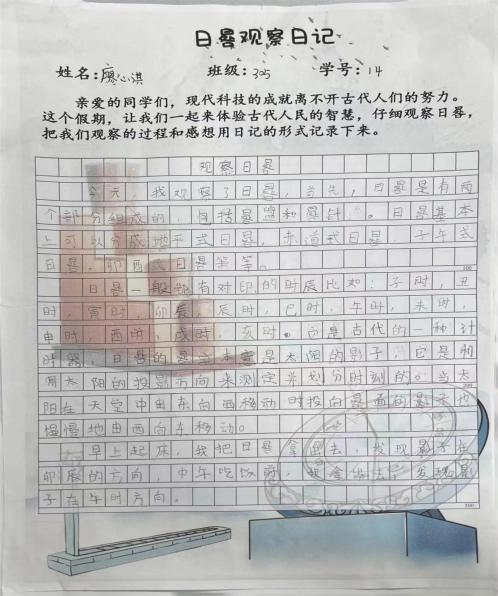 日晷观察日记
姓名：廖心淇 班级：305 学号：14
亲爱的同学们，现代科技的成就离不开古代人们的努力。
这个假期，让我们一起来体验古代人民的智慧，仔细观察日晷，
把我们观察的过程和感想用日记的形式记录下来。
观察日晷
今天，我观察了日晷，首先，日晷是有两
个部分组成的，包括晷盘和晷针。日晷基本
上可以分成地平式日晷，赤道式日晷，子午式
日晷，卯酉式日晷等等。
100
日晷一般都有对印的时辰比如：子时，丑
时，寅时，卯辰，辰时，巳时，午时，未时，
申时，酉时，戌时，亥时。它是古代的一种计
时器，日晷的是太阳的影子，它是利
200
用太阳的投影方向来测定并划分时刻的。当太
阳在天空中由东向西移动时投向晷面的影子也
慢慢地由西向东移动。
早上起床，我把日晷拿出去，发现影子在
卯辰的方向，中午吃饭前，我拿出去，发现影
子在午时方向。
300